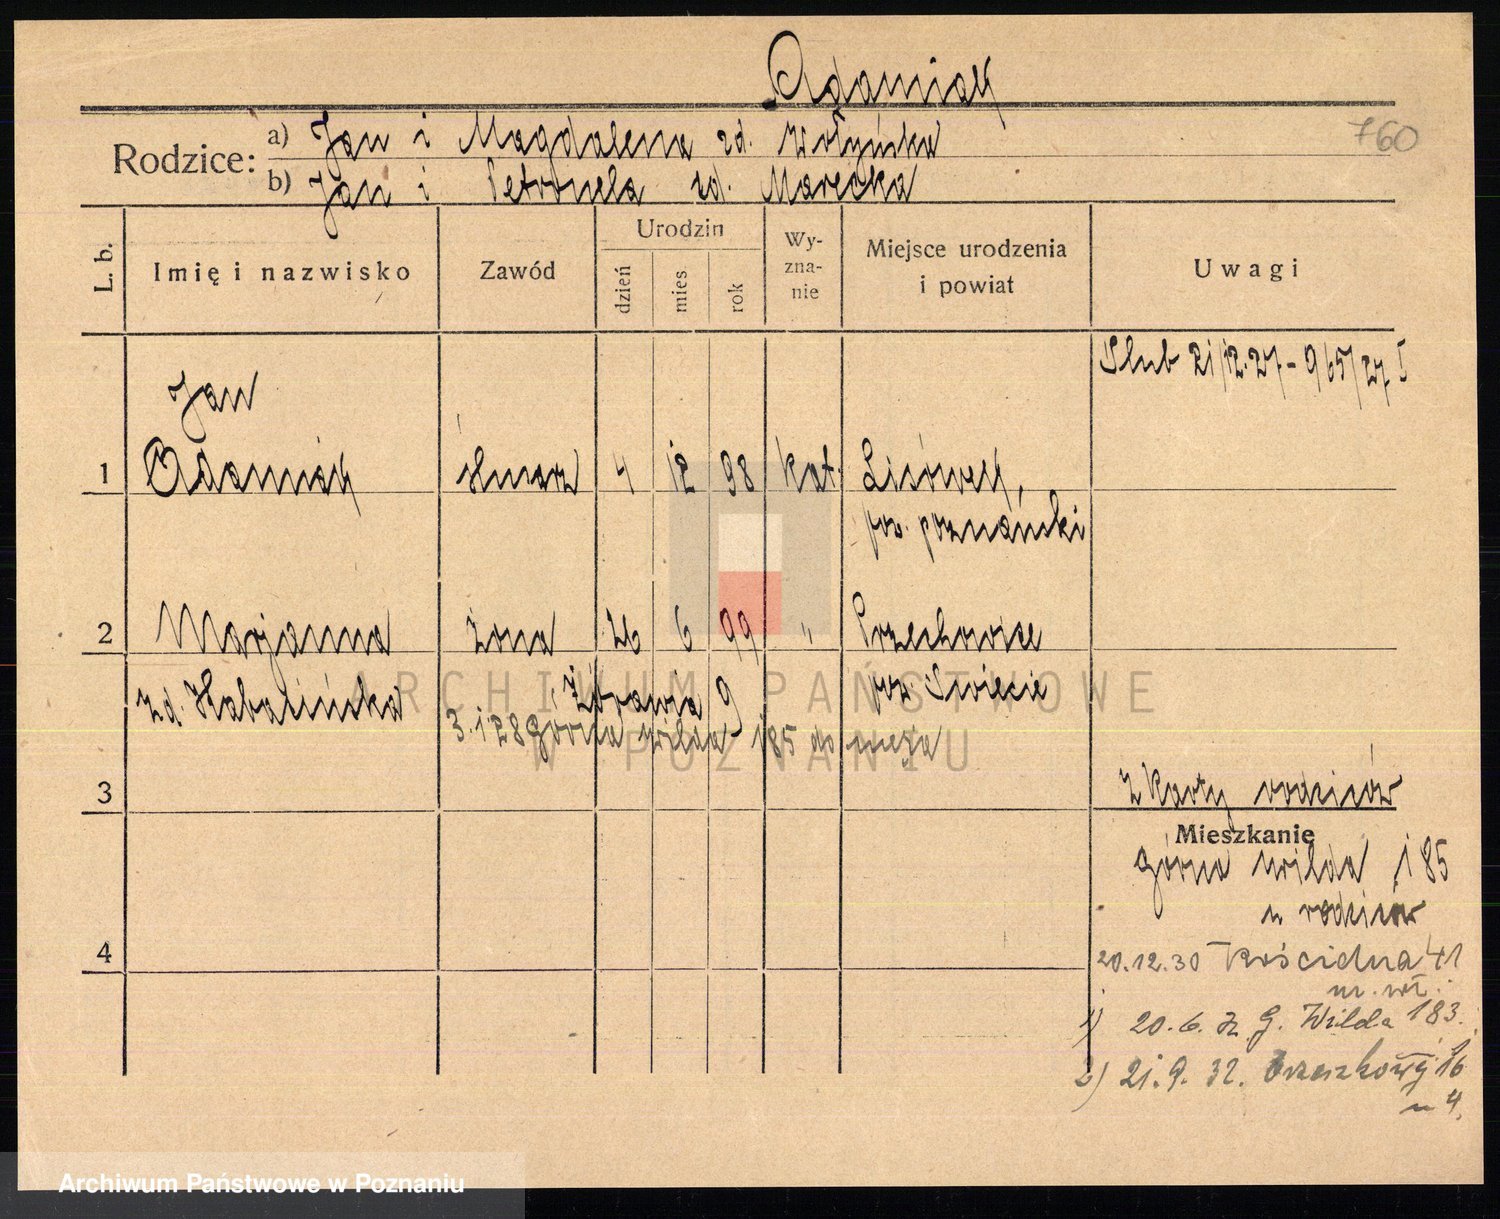 Adamiak
760
Rodzice: a) Jan i Magdalena zd. Wołyńska
b) Jan i Petronela zd. Marecka
L. b.
Imię i nazwisko
Zawód
Urodzin
dzień
mies
rok
Wy-
zna-
nie
Miejsce urodzenia
i powiat
Uwagi
Slub 21/12.27-965/27 I
Jan
1 Adamiak ślusarz 4 12 98 kat. Lisówek,
pow. poznański
2 Marjanna żona 26 6 99 " Przechowice
zd. Kabacińska Żórawia 9 pow. Swiecie
3.1 28 górna wilda 185 do męża
3
z karty rodziców
Mieszkanie
górna wilda 185
u rodziców
4
20.12.30 Kościelna 41
m. wł.
1) 20.6. G. Wilda 183.
2) 21.9.32. Orzeszkowej 16
m 4.
ARCHIWUM PAŃSTWOWE
W POZNANIU
Archiwum Państwowe w Poznaniu